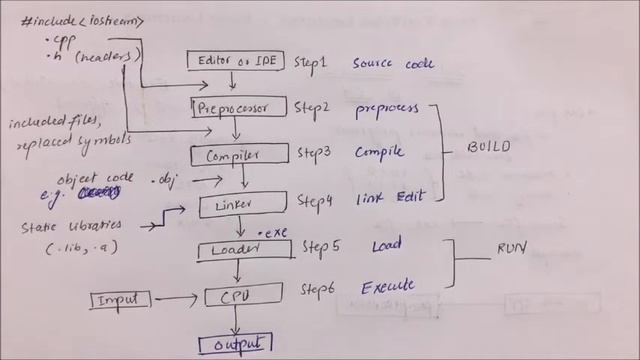 #include<iostream>
.cpp
.h (headers)
Editor or IDE Step1 Source code
Preprocessor Step2 preprocess
included files,
replaced symbols
Compiler Step3 Compile
BUILD
object code .obj
e.g.
Linker Step4 link Edit
Static libraries
(.lib, .a)
.exe
Loader Step5 Load
RUN
Input CPU Step6 Execute
output